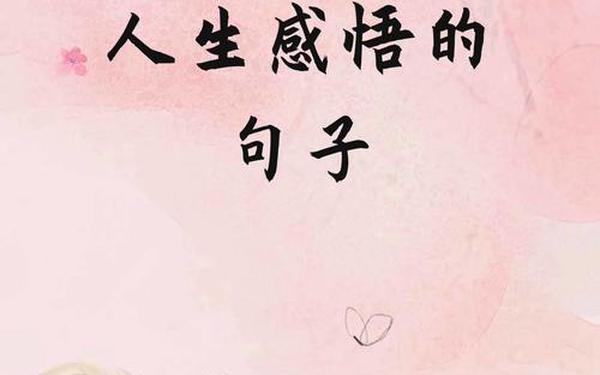 人生感悟的
句子